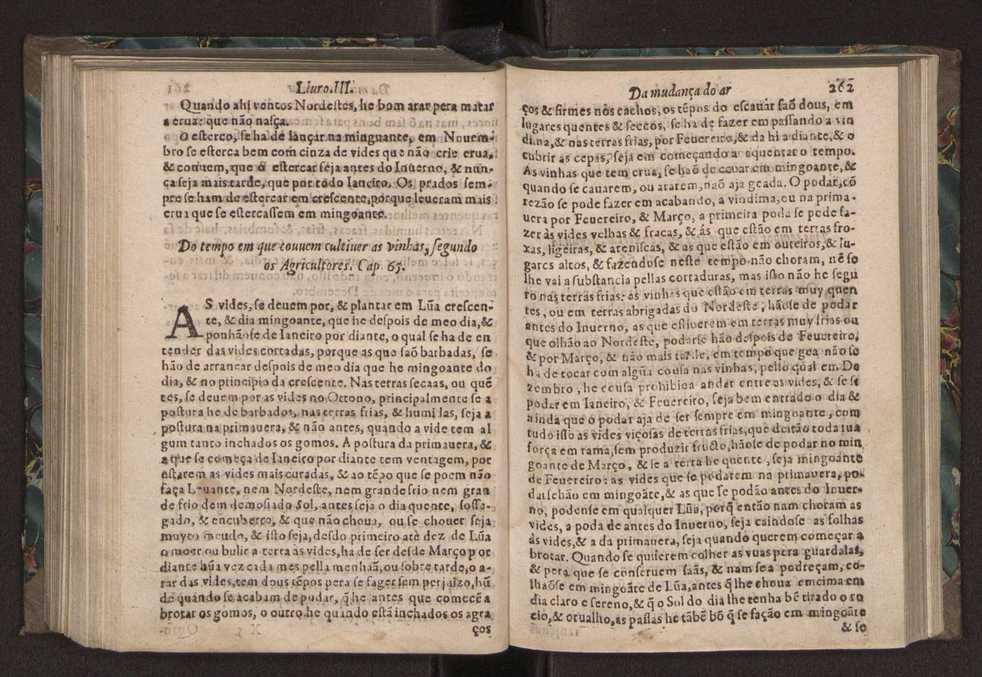 Liuro.III.
Quando ahi ventos Nordestes, he bom arar pera matar
a erua: que não nasça.
O esterco, se ha de lançar na minguante, em Nouem-
bro se esterca bem com cinza de vides que não crie erua,
& conuem, que o estercar seja antes do Inuerno, & nun-
ça seja mais tarde, que por todo Ianeiro. Os prados sem-
pre se ham de estercar em crescente, porque leueram mais
erua que se estercassem em mingoante.
Do tempo em que conuem cultiuer as vinhas, segundo
os Agricultores. Cap. 63.
AS vides, se deuem por, & plantar em Lũa crescen-
te, & dia mingoante, que he despois de meo dia, &
ponhãose de Ianeiro por diante, o qual se ha de en
tender das vides cortadas, porque as que saõ barbadas, se
hão de arrancar despois de meo dia que he mingoante do
dia, & no principio da crescente. Nas terras secaas, ou quē
tes, se deuem por as vides no Ottono, principalmente se a
postura he de barbados, nas terras frias, & humidas, seja a
postura na primauera, & não antes, quando a vide tem al
gum tanto inchados os gomos. A postura da primauera, &
a que se começa de Ianeiro por diante tem ventagem, por
estarem as vides mais curadas, & ao tẽpo que se poem não
faça Leuante, nem Nordeste, nem grande frio nem gran
de frio dem demosiado Sol, antes seja o dia quente, sossa-
gado, & encuberto, & que não choua, ou se chouer seja
muyto meudo, & isto seja, desdo primeiro atè dez de Lũa
o mouer ou bulir a terra às vides, ha de ser desde Março por
diante hũa vez cada mes pella menhaã, ou sobre tarde, o a-
rar das vides, tem dous tẽpos pera se fazer sem perjuizo, hũ
de quando se acabam de podar, q̃ he antes que comecẽ a
brotar os gomos, o outro he quando estã inchados os agra
ços
Da mudança do ar
262
ços & firmes nos cachos, os tẽpos do escauar saõ dous, em
lugares quentes & seccos, se ha de fazer em passando a vin
dima, & nas terras frias, por Feuereiro, & da hi a diante, & o
cubrir as cepas, seja em começando a aquentar o tempo.
As vinhas que tem erua, se haõ de couar em mingoante, &
quando se cauarem, ou ararem, naõ aja geada. O podar, cõ
rezão se pode fazer em acabando, a vindima, ou na prima-
uera por Feuereiro, & Março, a primeira poda se pode fa-
zer às vides velhas & fracas, & às que estão em terras fro-
xas, ligeiras, & areniscas, & as que estão em outeiros, & lu-
gares altos, & fazendose neste tempo não choram, nē se
lhe vai a substancia pellas cortaduras, mas isto não he segu
ro nas terras frias: as vinhas que estão em terras muy quen
tes, ou em terras abrigadas do Nordeste, hãose de podar
antes do Inuerno, as que estiuerem em terras muy frias ou
que olhão ao Nordeste, podarse hão despois de Feuereiro,
& por Março, & não mais tarde, em tempo que gea não se
ha de tocar com algũa cousa nas vinhas, pello qual em De
zembro, he cousa prohibida andar entre as vides, & se se
podar em Ianeiro, & Feuereiro, seja bem entrado o dia &
ainda que o podar aja de ser sempre em mingoante, com
tudo isso as vides viçosas de terras frias, que deitão toda sua
força em rama, sem produzir fructo, hãose de podar no min
goante de Março, & se a terra he quente, seja mingoante
de Feuereiro: as vides que se podarem na primauera, po-
darsehão em mingoãte, & as que se podão antes do Inuer-
no, podense em qualquer Lũa, porq̃ então nam choram as
vides, a poda de antes do Inuerno, seja caindose as folhas
às vides, & a da primauera, seja quando querem começar a
brotar. Quando se quiserem colher as vuas pera guardalas,
& pera que se conseruem saãs, & nam se apodreçam, co-
lhãose em mingoãte de Lũa, antes q̃ lhe choua em cima em
dia claro e sereno, & q̃ o Sol do dia lhe tenha bẽ tirado o ro
cio, & orualho, as passas he tãbẽ bõ q̃ se fação em mingoãte
& se